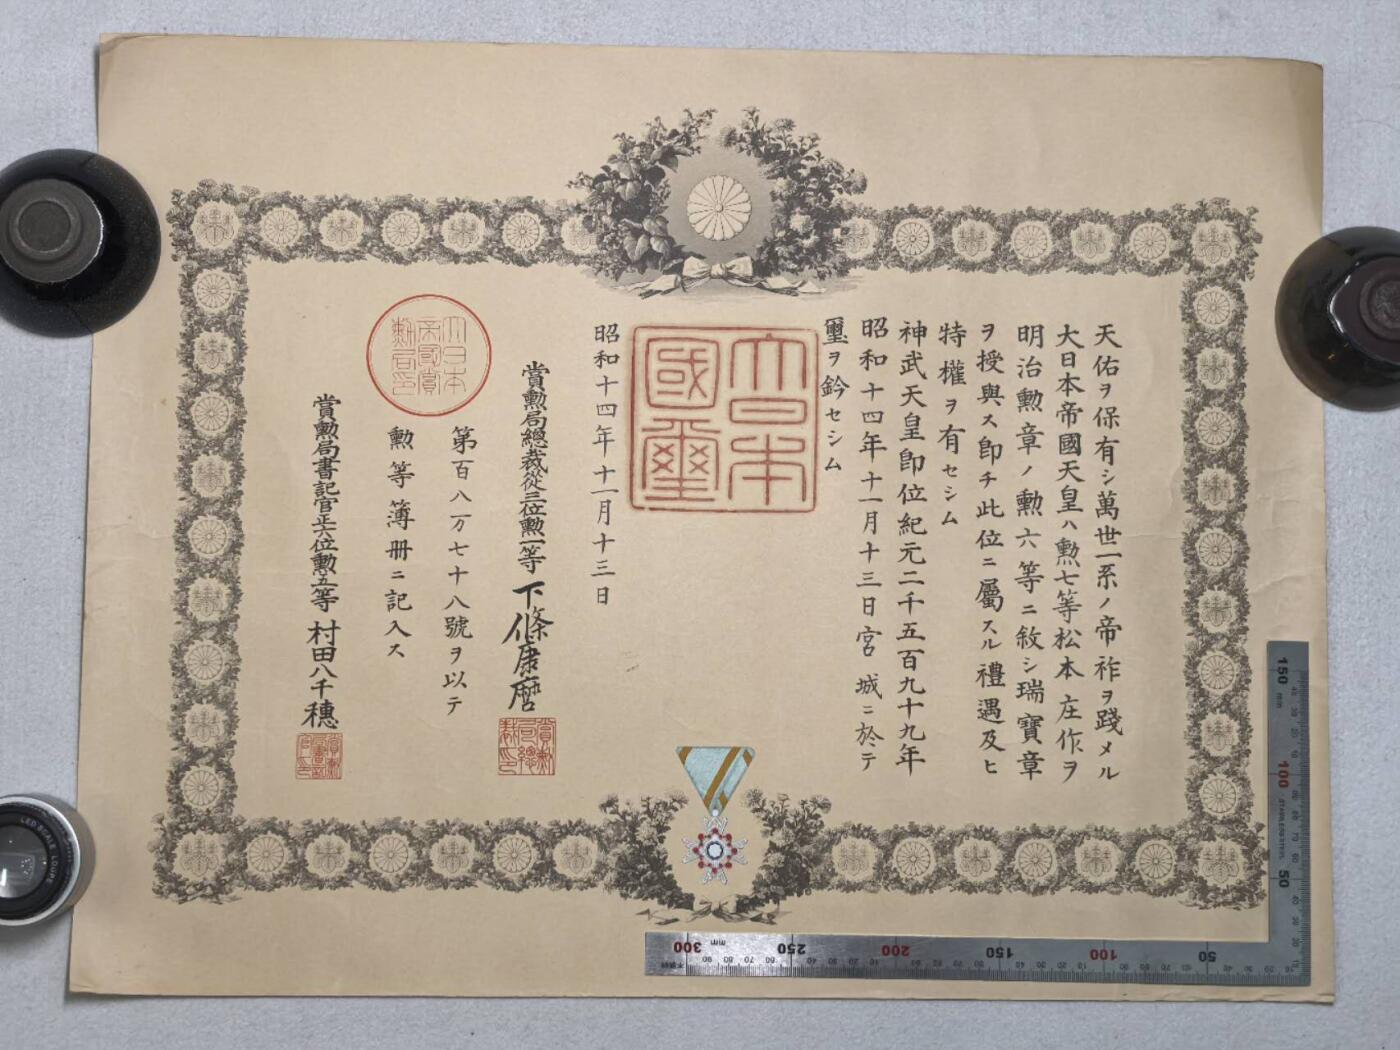 天佑ヲ保有シ萬世一系ノ帝祚ヲ踐メル
大日本帝國天皇ハ勲七等松本庄作ヲ
明治勲章ノ勲六等ニ敘シ瑞寶章
ヲ授與ス卽チ此位ニ屬スル禮遇及ヒ
特權ヲ有セシム
神武天皇卽位紀元二千五百九十九年
昭和十四年十一月十三日宮城ニ於テ
璽ヲ鈐セシム
大日本
國璽
昭和十四年十一月十三日
賞勲局總裁從三位勲一等下條康麿
賞勲局總裁印
第百八一万七十八號ヲ以テ
勲等簿冊ニ記入ス
大日本帝國賞勲局印
賞勲局書記官正六位勲五等村田八千穂
150 mm
100
50
STAINLESS STEEL
300 mm
250
200
150
100
50
LED SCALE LOUPE